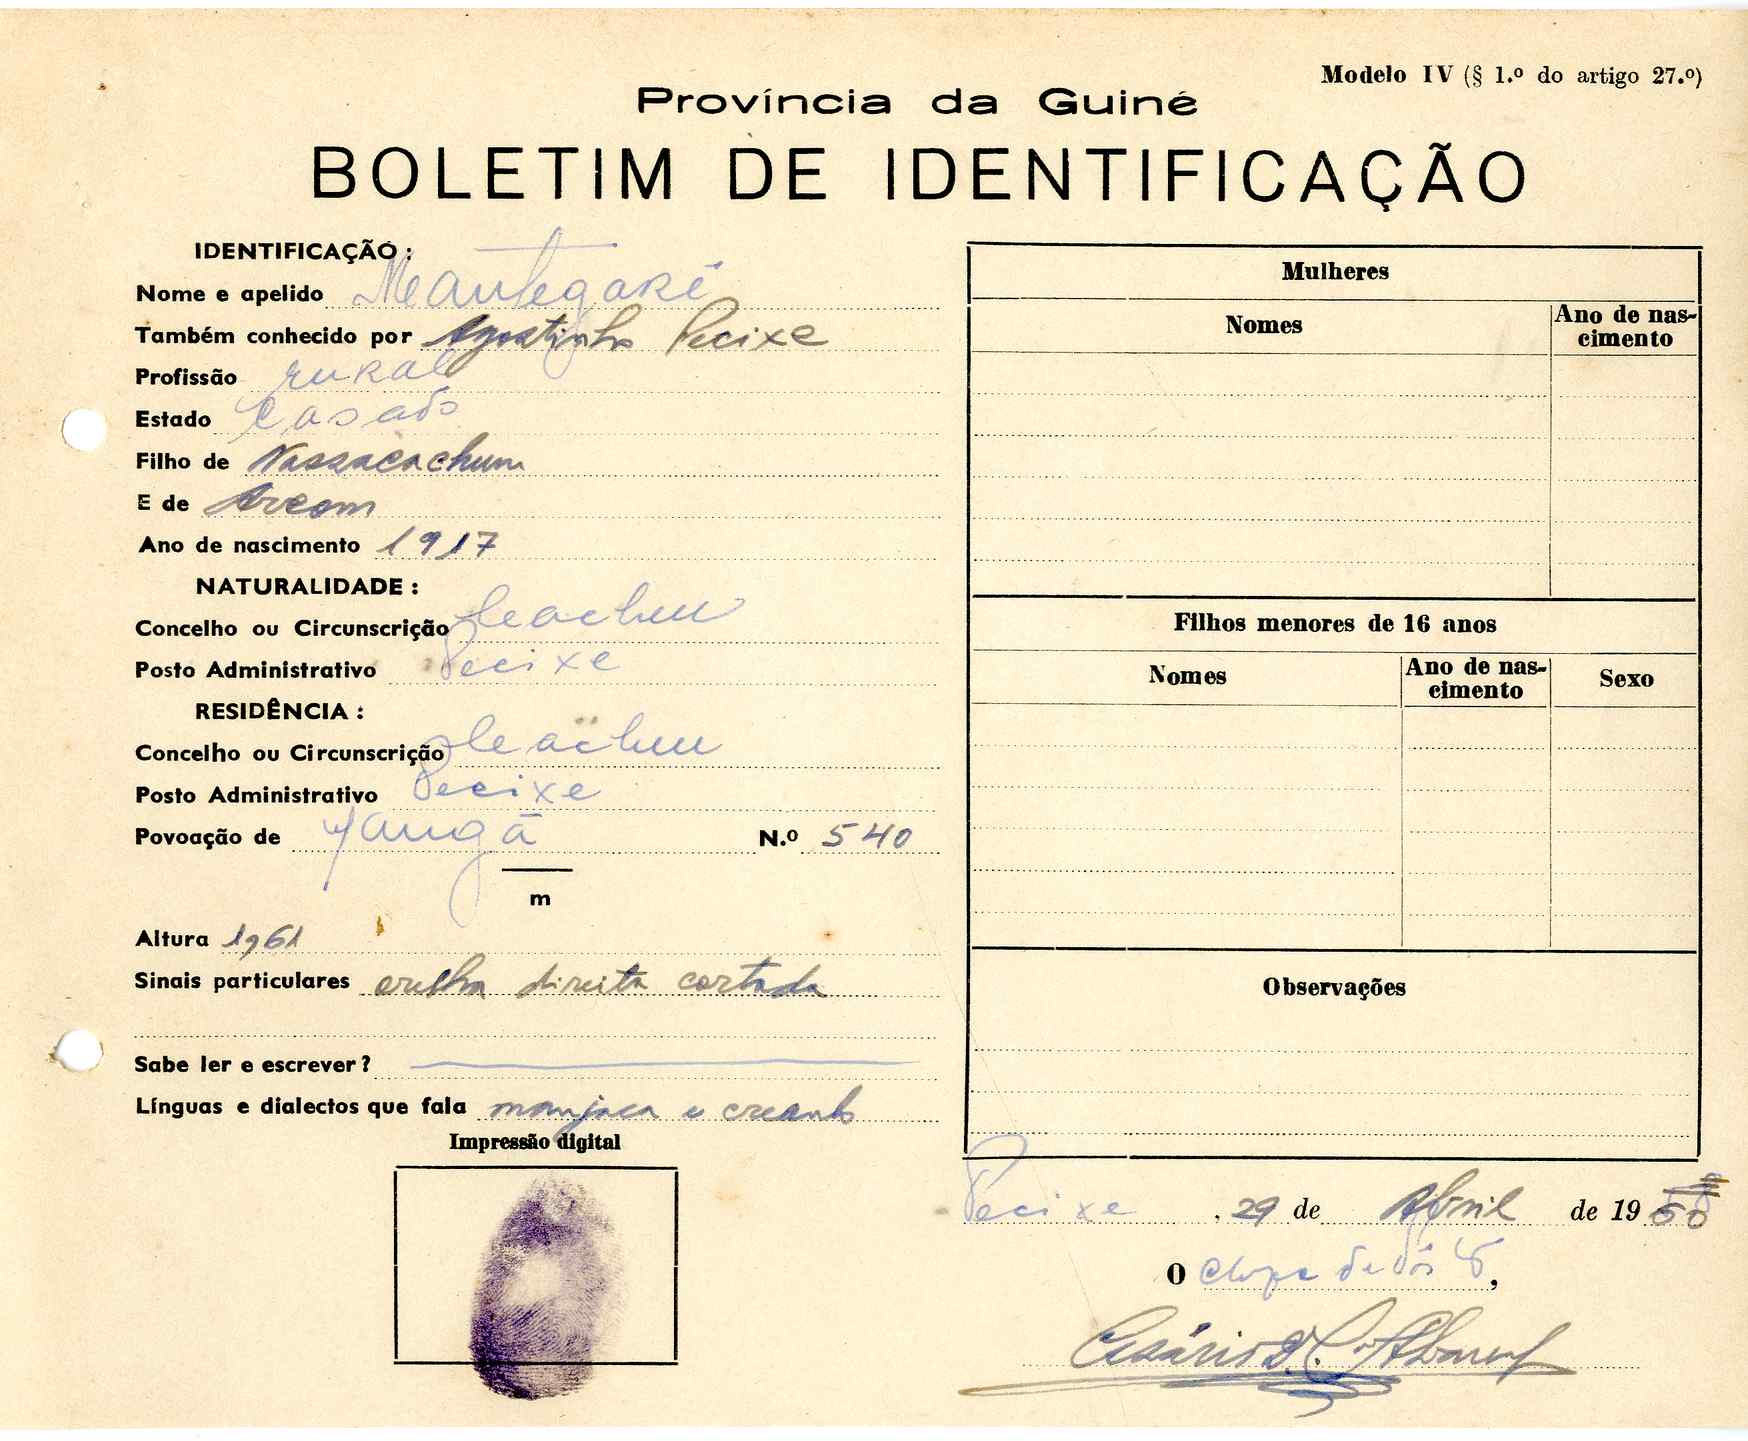 Modelo IV (§ 1.º do artigo 27.º)
Província da Guiné
BOLETIM DE IDENTIFICAÇÃO
IDENTIFICAÇÃO:
Nome e apelido
Também conhecido por Agostinho Pecixe
Profissão rural
Estado Casado
Filho de Nassacachum
E de Arcom
Ano de nascimento 1917
NATURALIDADE:
Concelho ou Circunscrição Cacheu
Posto Administrativo Pecixe
RESIDÊNCIA:
Concelho ou Circunscrição Cacheu
Posto Administrativo Pecixe
Povoação de N.º 540
m
Altura 1,61
Sinais particulares orelha direita cortada
Sabe ler e escrever?
Línguas e dialectos que fala manjaca e creoulo
Impressão digital
Mulheres
Nomes
Ano de nas-
cimento
Filhos menores de 16 anos
Nomes
Ano de nas-
cimento
Sexo
Observações
Pecixe, 29 de Abril de 19
O Chefe de Posto,